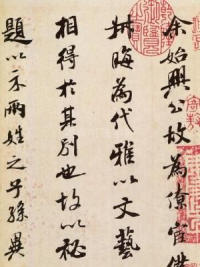 余始興公故為僚宦僕
叔晦為代雅以文藝
相得於其別也故以秘
題以示兩姓之子孫異